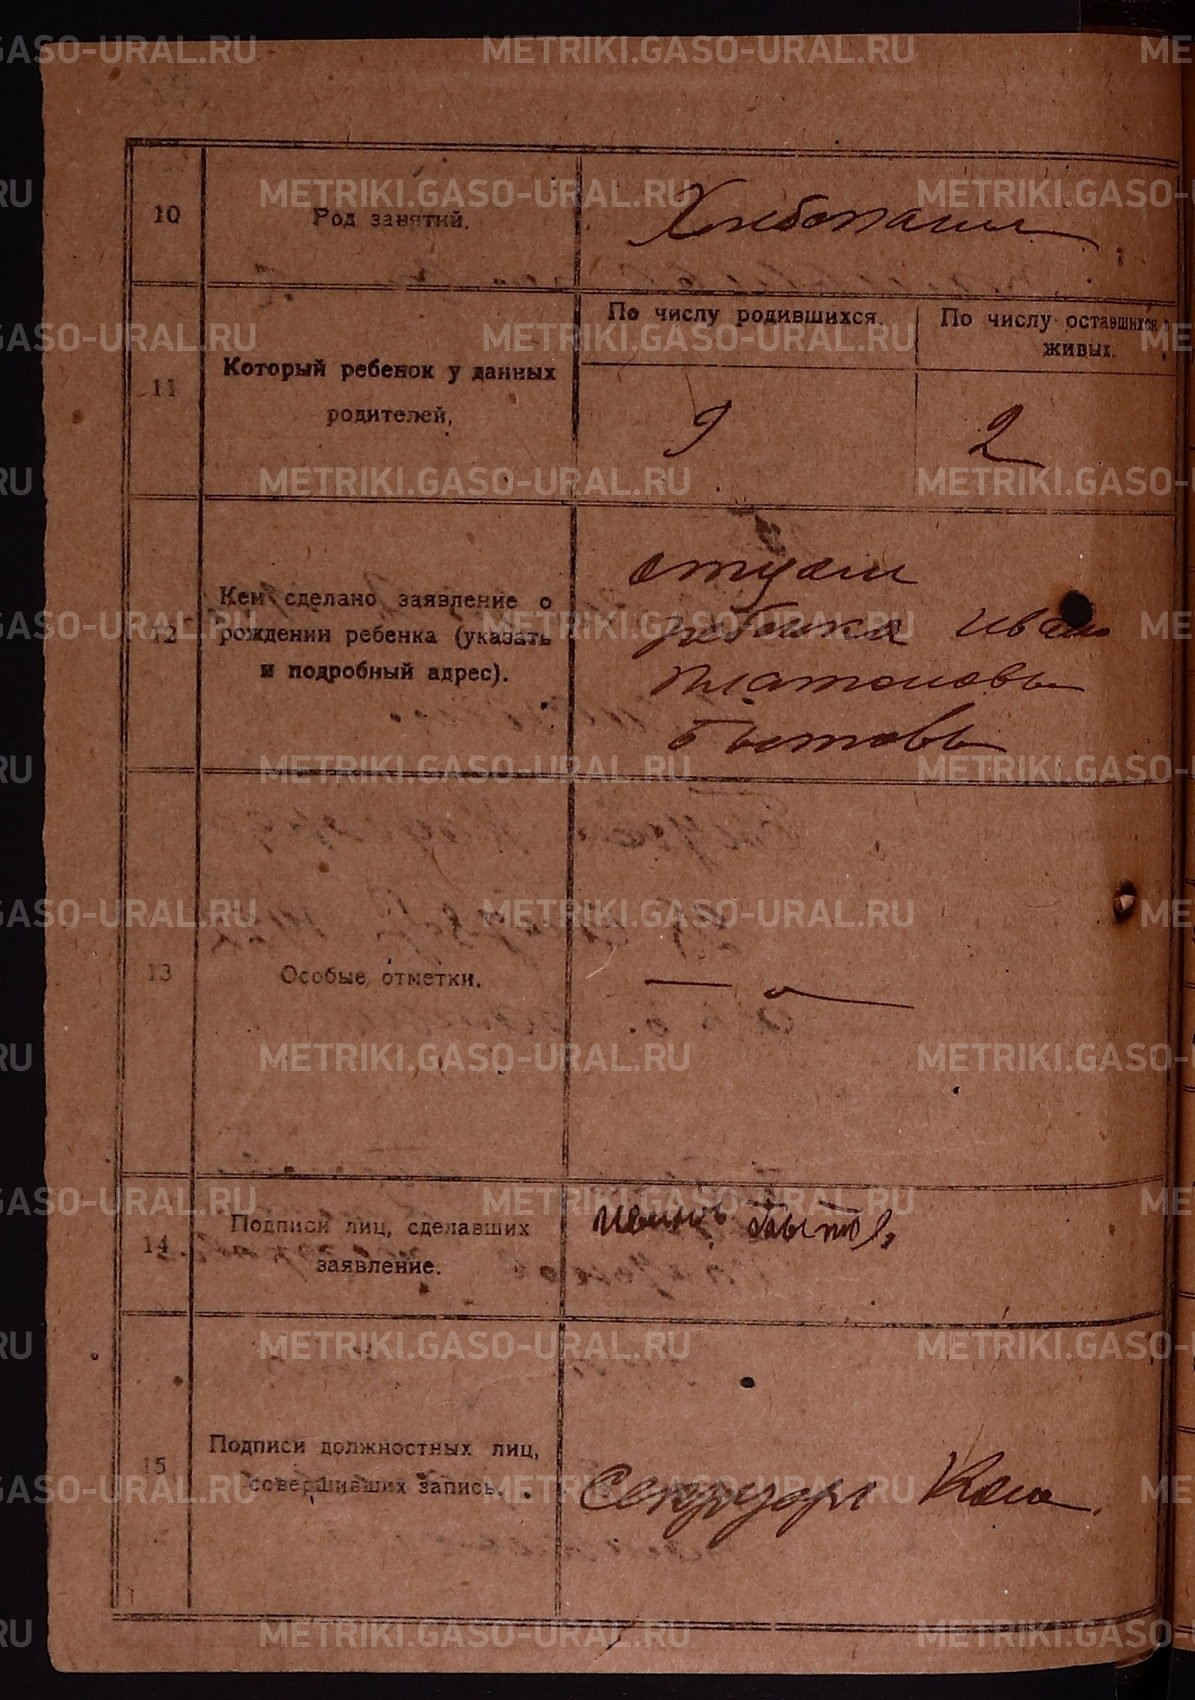 10
Род занятий.
Хлебопашец
11
Который ребенок у данных
родителей,
По числу родившихся.
По числу оставшихся в
живых.
9
2
12
Кем сделано заявление о
рождении ребенка (указать
и подробный адрес).
отцом
ребенка Иван
Платоновъ
Бытовъ
13
Особые отметки.
14
Подписи лиц, сделавших
заявление.
Иванъ
15
Подписи должностных лиц,
совершивших запись.
METRIKI.GASO-URAL.RU